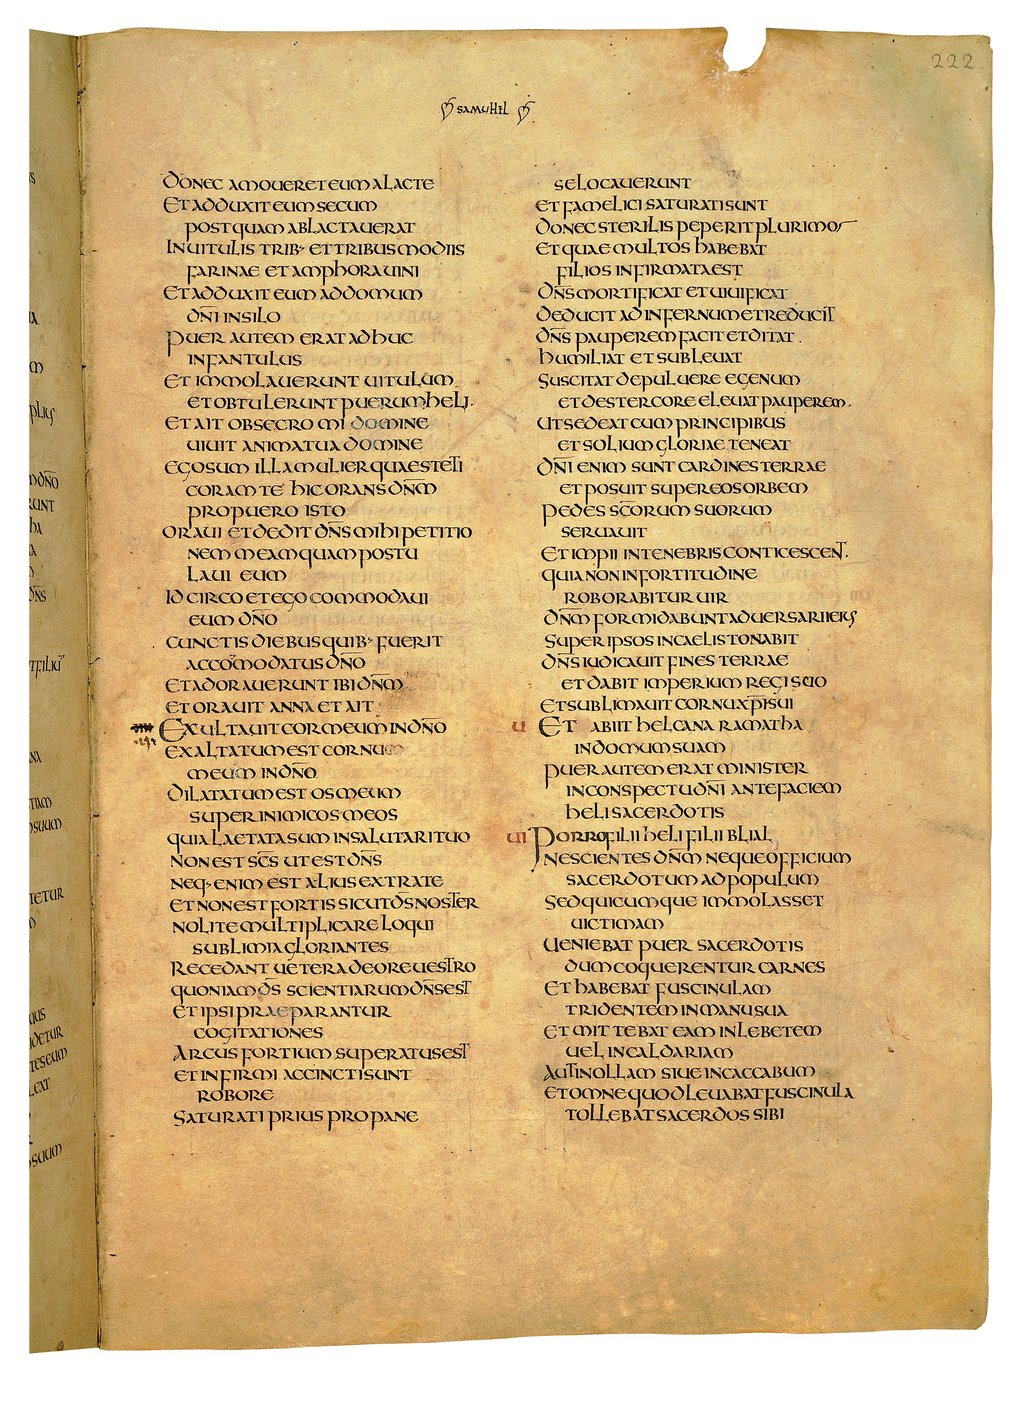 222
SAMUHEL
DONEC AMOUERET EUM A LACTE
ET ADDUXIT EUM SECUM
POSTQUAM ABLACTAUERAT
IN UITULIS TRIB· ET TRIBUS MODIIS
FARINAE ET AMPHORA UINI
ET ADDUXIT EUM AD DOMUM
DN̄I IN SILO
PUER AUTEM ERAT ADHUC
INFANTULUS
ET IMMOLAUERUNT UITULUM
ET OBTULERUNT PUERUM HELI·
ET AIT OBSECRO MI DOMINE
UIUIT ANIMA TUA DOMINE
EGO SUM ILLA MULIER QUAE STETI
CORAM TE HIC ORANS DN̄M
PRO PUERO ISTO
ORAUI ET DEDIT DN̄S MIHI PETITIO
NEM MEAM QUAM POSTU
LAUI EUM
IDCIRCO ET EGO COMMODAUI
EUM DN̄O
CUNCTIS DIEBUS QUIB· FUERIT
ACCOMODATUS DN̄O
ET ADORAUERUNT IBI DN̄M
ET ORAUIT ANNA ET AIT
EXULTAUIT COR MEUM IN DN̄O
EXALTATUM EST CORNU
MEUM IN DN̄O
DILATATUM EST OS MEUM
SUPER INIMICOS MEOS
QUIA LAETATA SUM IN SALUTARI TUO
NON EST SC̄S UT EST DN̄S
NEQ· ENIM EST ALIUS EXTRA TE
ET NON EST FORTIS SICUT D̄S NOSTER
NOLITE MULTIPLICARE LOQUI
SUBLIMIA GLORIANTES
RECEDANT UETERA DE ORE UESTRO
QUONIAM D̄S SCIENTIARUM DN̄S EST
ET IPSI PRAEPARANTUR
COGITATIONES
ARCUS FORTIUM SUPERATUS EST
ET INFIRMI ACCINCTI SUNT
ROBORE
SATURATI PRIUS PRO PANE
SE LOCAUERUNT
ET FAMELICI SATURATI SUNT
DONEC STERILIS PEPERIT PLURIMOS
ET QUAE MULTOS HABEBAT
FILIOS INFIRMATA EST
DN̄S MORTIFICAT ET UIUIFICAT
DEDUCIT AD INFERNUM ET REDUCIT
DN̄S PAUPEREM FACIT ET DITAT·
HUMILIAT ET SUBLEUAT
SUSCITAT DE PULUERE EGENUM
ET DE STERCORE ELEUAT PAUPEREM·
UT SEDEAT CUM PRINCIPIBUS
ET SOLIUM GLORIAE TENEAT
DN̄I ENIM SUNT CARDINES TERRAE
ET POSUIT SUPER EOS ORBEM
PEDES SC̄ORUM SUORUM
SERUAUIT
ET IMPII IN TENEBRIS CONTICESCENT·
QUIA NON IN FORTITUDINE
ROBORABITUR UIR
DN̄M FORMIDABUNT ADUERSARII EIUS
SUPER IPSOS IN CAELIS TONABIT
DN̄S IUDICAUIT FINES TERRAE
ET DABIT IMPERIUM REGI SUO
ET SUBLIMAUIT CORNU XP̄I SUI
U ET ABIIT HELCANA RAMATHA
IN DOMUM SUAM
PUER AUTEM ERAT MINISTER
IN CONSPECTU DN̄I ANTE FACIEM
HELI SACERDOTIS
UI PORRO FILII HELI FILII BLIAL
NESCIENTES DN̄M NEQUE OFFICIUM
SACERDOTUM AD POPULUM
SED QUICUMQUE IMMOLASSET
UICTIMAM
UENIEBAT PUER SACERDOTIS
DUM COQUERENTUR CARNES
ET HABEBAT FUSCINULAM
TRIDENTEM IN MANU SUA
ET MITTEBAT EAM IN LEBETEM
UEL IN CALDARIAM
AUT IN OLLAM SIUE IN CACCABUM
ET OMNE QUOD LEUABAT FUSCINULA
TOLLEBAT SACERDOS SIBI